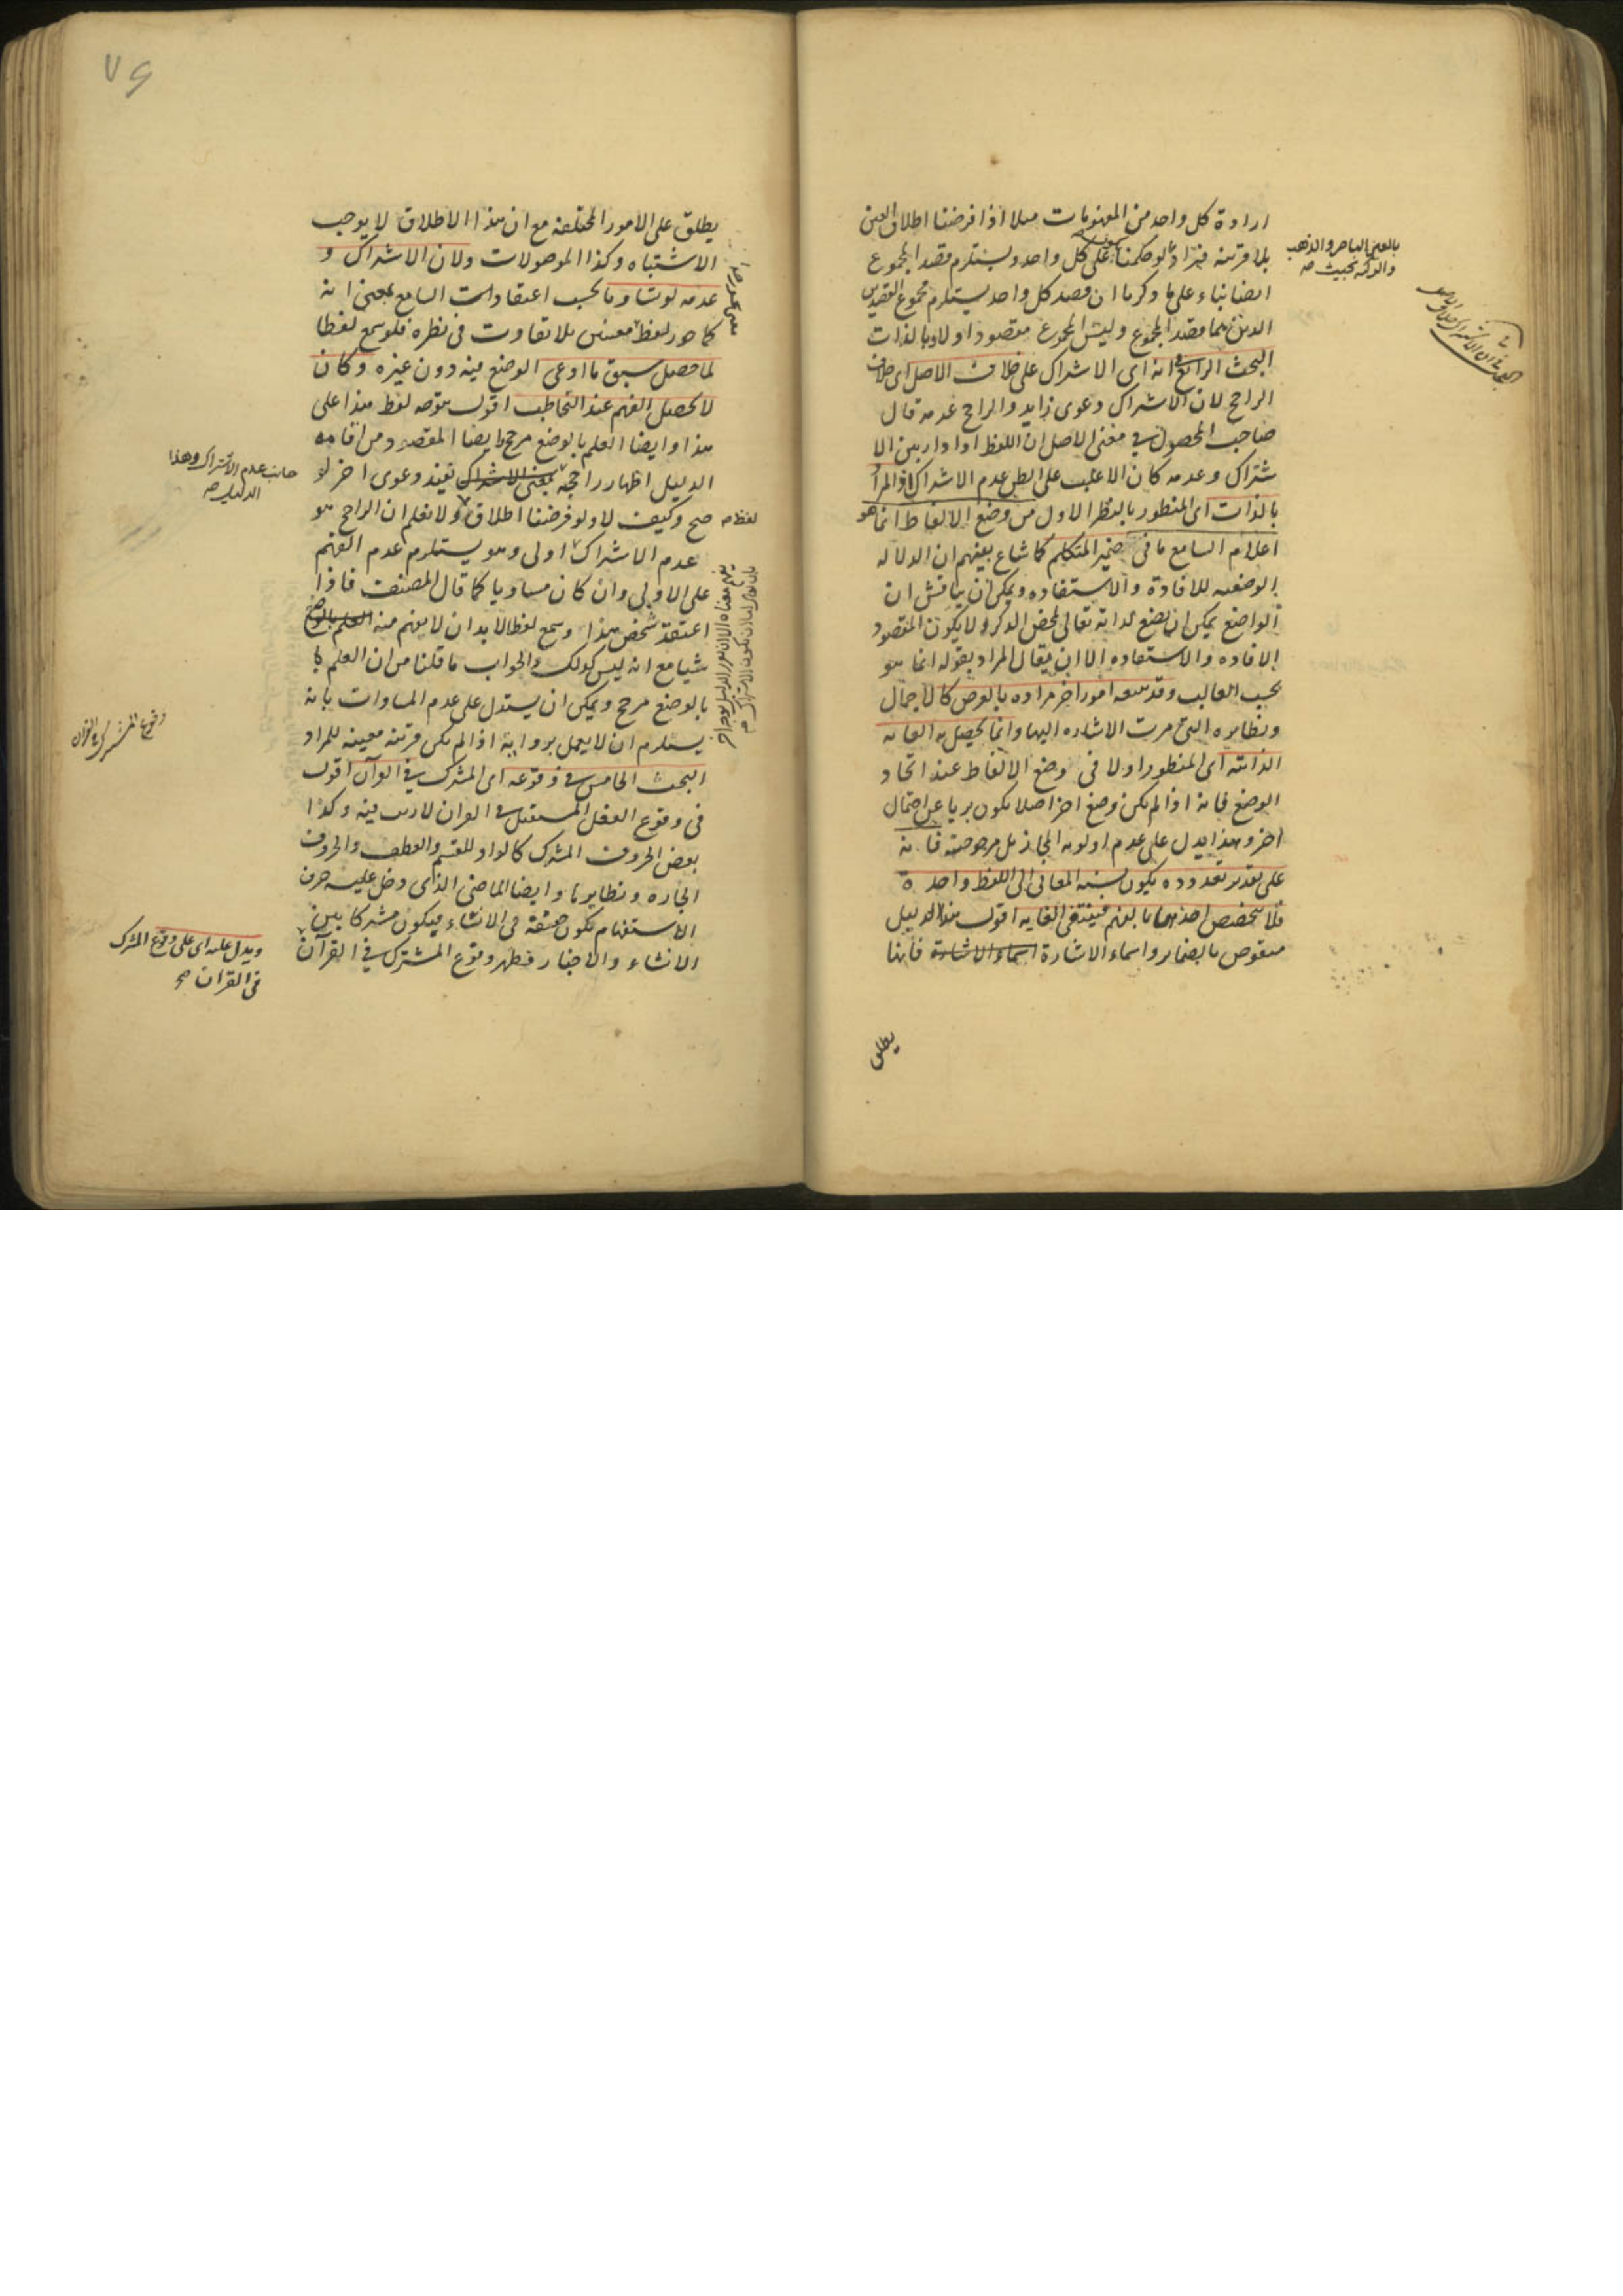 ارادة كل واحد من المفهومات مثلا اذا فرضنا اطلاق العين
بلا قرينة فيراد لو حكمنا على كل واحد ويستلزم قصد المجموع
ايضا بناء على ما ذكرنا ان قصد كل واحد يستلزم مجموع القصدين
الذين هما قصد المجموع وليس المجموع مقصودا اولا وبالذات
البحث الرابع في انه اى الاشتراك على خلاف الاصل اى خلاف
الراجح لان الاشتراك دعوى زايد والراجح عدمه قال
صاحب المحصول في معنى الاصل ان اللفظ اذا دار بين الا
شتراك وعدمه كان الاغلب على الظن عدم الاشتراك اذ المراد
بالذات اى المنظور بالنظر الاول من وضع الالفاظ انما هو
اعلام السامع ما فى ضمير المتكلم كما شاع بينهم ان الدلالة
الوضعيه للافادة والاستفاده ويمكن ان يناقش ان
الواضع يمكن ان يضع لذاته تعالى لمحض الذكر ولا يكون المقصود
الافاده والاستفاده الا ان يقال المراد بقوله انما هو
بحسب الغالب وقد يتبعه امورا اخر مراده بالعرض كالاجمال
ونظايره التى مرت الاشاره اليها وانما يحصل به الغاية
الذاتية اى المنظور اولا فى وضع الالفاظ عند اتحاد
الوضع فانه اذا لم يكن وضع اخر اصلا يكون بريا عن احتمال
اخر وهذا يدل على عدم اولويه المجاز بل مرجوحيته فانه
على تقدير تعدده يكون نسبة المعانى الى اللفظ واحدة
فلا يتخصص احدهما بالفهم فينتفى الغايه اقول هذا الدليل
منقوض بالضماير واسماء الاشارة اسماء الاشارة فانها
يطلق
بالعين الباصر والذهب
والركبة بحيث صح
٧٦
يطلق على الامور المختلفة مع ان هذا الاطلاق لا يوجب
الاشتباه وكذا الموصولات ولان الاشتراك و
عدمه لو تساويا بحسب اعتقادات السامع بمعنى انه
كما جوز لفظ معنيين بلا تفاوت فى نظره فلو سمع لفظا
لما حصل سبق ما ادعى الوضع فيه دون غيره وكان
لا يحصل الفهم عند التخاطب اقول يتوجه لفظ هذا على
هذا وايضا العلم بالوضع مرجح وايضا المقصود من اقامة
الدليل اظهار راجحية بمعنى الاشتراك يفيد دعوى اخر لو
صح وكيف لا ولو فرضنا اطلاق ولا نعلم ان الراجح هو
عدم الاشتراك اولى وهو يستلزم عدم الفهم
على الاولى وان كان مساويا كما قال المصنف فاذا
اعتقد شخص هذا وسمع لفظا لابد ان لا يفهم منه العلم بالوضع
شيا مع انه ليس كذلك والجواب ما قلنا من ان العلم با
بالوضع مرجح ويمكن ان يستدل على عدم المساوات بانه
يستلزم ان لا يعمل بروايه اذا لم يكن قرينه معينه للمراد
البحث الخامس في وقوعه اى المشترك في القرآن اقول
فى وقوع الفعل المستقبل في القران لا ريب فيه وكذا
بعض الحروف المشترك كالواو للقسم والعطف والحروف
الجاره ونظايرها وايضا الماضى الذى دخل عليه حرف
الاستفهام يكون حقيقة فى الانشاء فيكون مشتركا بين
الانشاء والاخبار فظهر وقوع المشترك في القرآن
جانب عدم الاشتراك وهذا
الدليل صح
لفظ صح
وقوع المشترك في القرآن
ويدل عليه اى على وقوع المشترك
فى القران صح